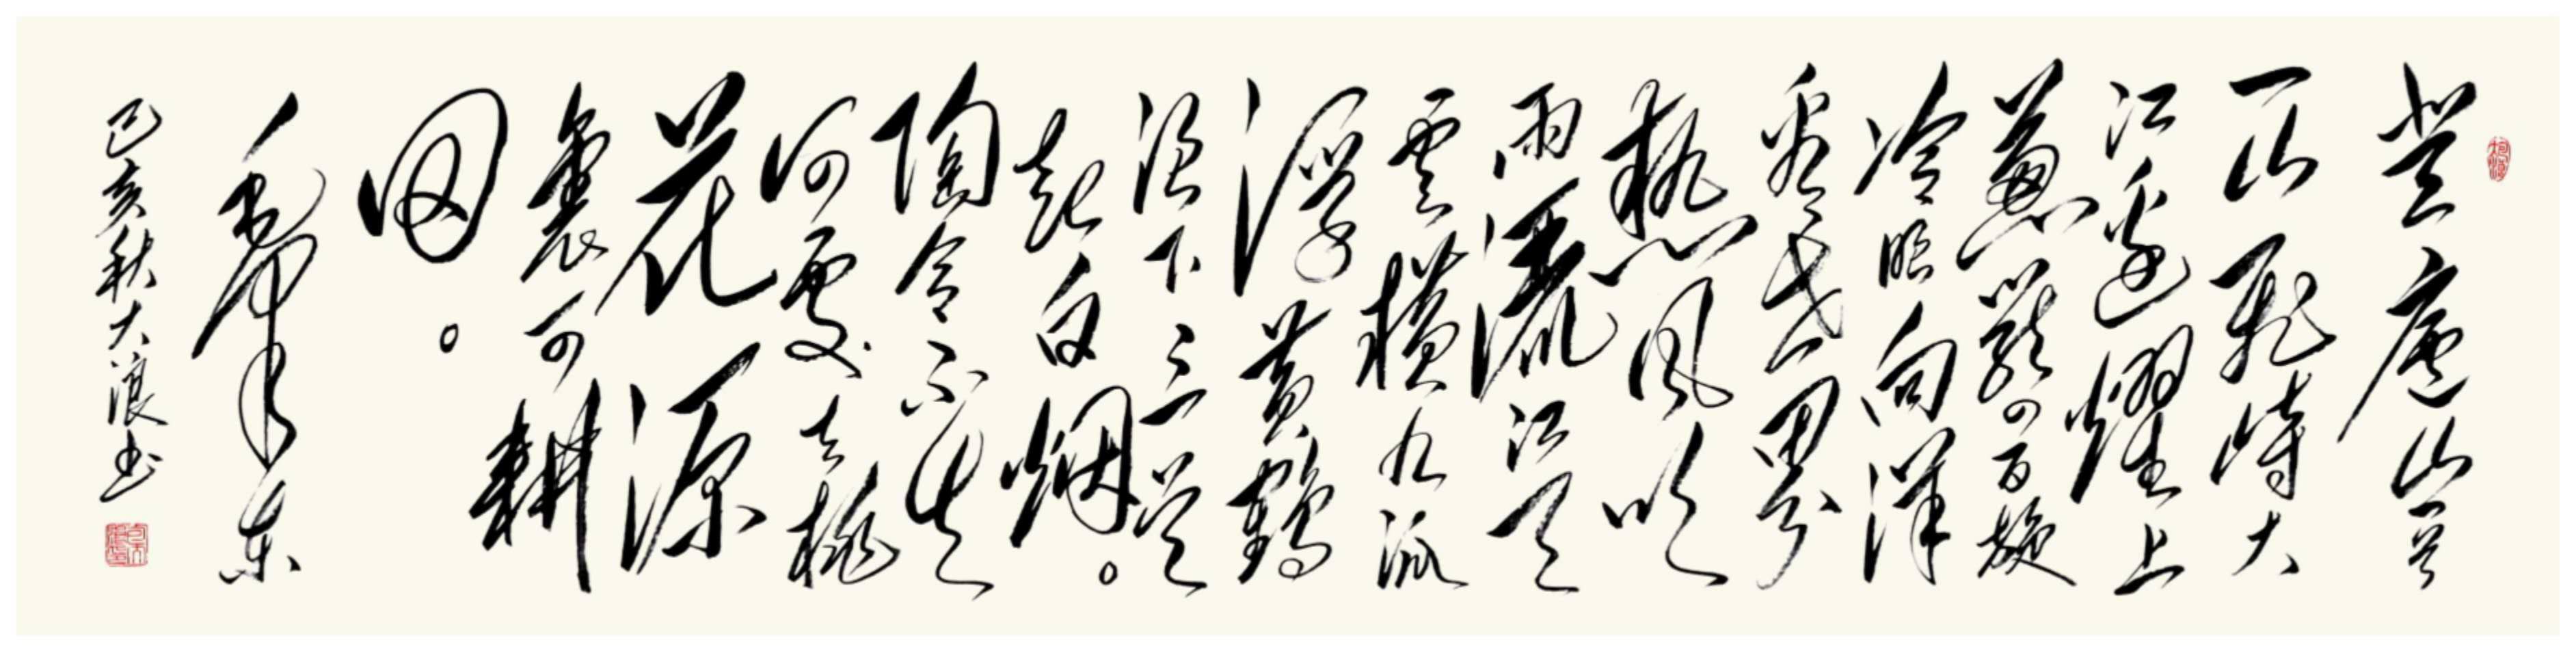 登廬山
一山飛峙大
江邊躍上
葱蘢四百旋
冷眼向洋
看世界
熱風吹
雨灑江天
雲横九派
浮黄鶴
浪下三吴
起白烟。
陶令不知
何處去桃
花源
裏可耕
田。
毛澤东
己亥秋大浪书